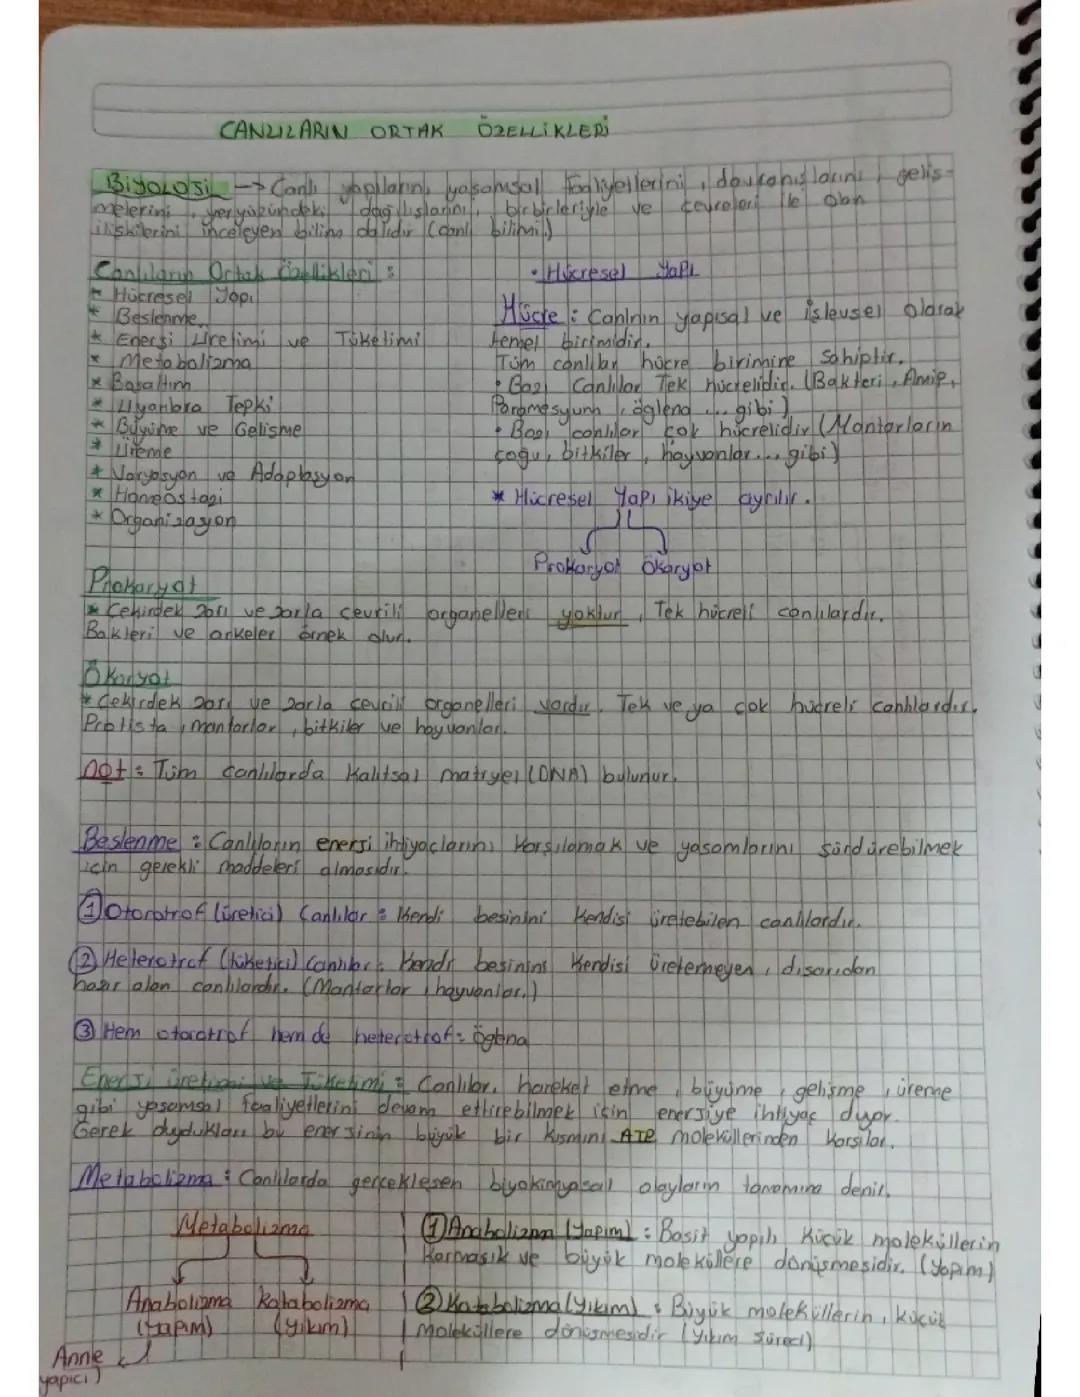 CANLILARIN ORTAK ÖZELLİKLERİ
Biyoloji → Canlı yapıların, yaşamsal faaliyetlerini, davranışlarını, geliş-
melerini, yeryüzündeki dağılışlarını, birbirleriyle ve çevreleri ile olan
ilişkilerini inceleyen bilim dalıdır (canlı bilimi.)
Canlıların Ortak Özellikleri :
* Hücresel Yapı
* Beslenme
* Enerji Üretimi ve Tüketimi
* Metabolizma
* Boşaltım
* Uyarılara Tepki
* Büyüme ve Gelişme
* Üreme
* Varyasyon ve Adaptasyon
* Homeostazi
* Organizasyon
• Hücresel Yapı
Hücre : Canlının yapısal ve işlevsel olarak
temel birimidir.
Tüm canlılar hücre birimine sahiptir.
• Bazı Canlılar Tek hücrelidir. (Bakteri, Amip,
Paramesyum, öglena ... gibi)
• Bazı canlılar çok hücrelidir (Mantarların
çoğu, bitkiler, hayvanlar... gibi)
* Hücresel Yapı ikiye ayrılır.
Prokaryot Ökaryot
Prokaryot
* Çekirdek zarı ve zarla çevrili organelleri yoktur, Tek hücreli canlılardır.
Bakteri ve arkeler örnek olur.
Ökaryot
* Çekirdek zarı ve zarla çevrili organelleri vardır. Tek veya çok hücreli canlılardır.
Protista, mantarlar, bitkiler ve hayvanlar.
not : Tüm canlılarda Kalıtsal matryel (DNA) bulunur.
Beslenme : Canlıların enerji ihtiyaçlarını karşılamak ve yaşamlarını sürdürebilmek
için gerekli maddeleri almasıdır.
① Otorotrof (üretici) Canlılar : Kendi besinini kendisi üretebilen canlılardır.
② Heterotrof (tüketici) Canlılar : Kendi besinini kendisi üretemeyen, dışarıdan
hazır alan canlılardır. (Mantarlar, hayvanlar.)
③ Hem otorotrof hem de heterotrof : öglena
Enerji üretimi ve Tüketimi : Canlılar, hareket etme, büyüme, gelişme, üreme
gibi yaşamsal faaliyetlerini devam ettirebilmek için enerjiye ihtiyaç duyar.
Gerek duydukları bu enerjinin büyük bir kısmını ATP moleküllerinden karşılar.
Metabolizma : Canlılarda gerçekleşen biyokimyasal olayların tamamına denir.
Metabolizma
Anabolizma Katabolizma
(Yapım) (Yıkım)
Anne
yapıcı)
① Anabolizma (Yapım) : Basit yapılı küçük moleküllerin
Karmaşık ve büyük moleküllere dönüşmesidir. (Yapım)
② Katabolizma (Yıkım) : Büyük moleküllerin, küçük
moleküllere dönüşmesidir (Yıkım süreci)